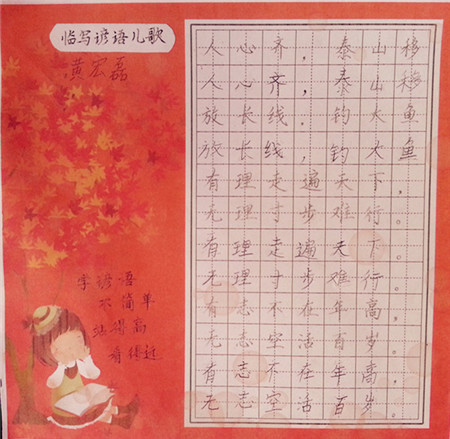 临写谚语儿歌
黄宏磊
人心齐,泰山移
人心齐,泰山移
放长线.钓大鱼
放长线,钓大鱼
有理走遍天下,
无理寸步难行。
有理走遍天下。
无理寸步难行。
有志不在年高,
无志空活百岁。
有志不在年高,
无志空活百岁。
学谚语
不简单
站得高
看得远